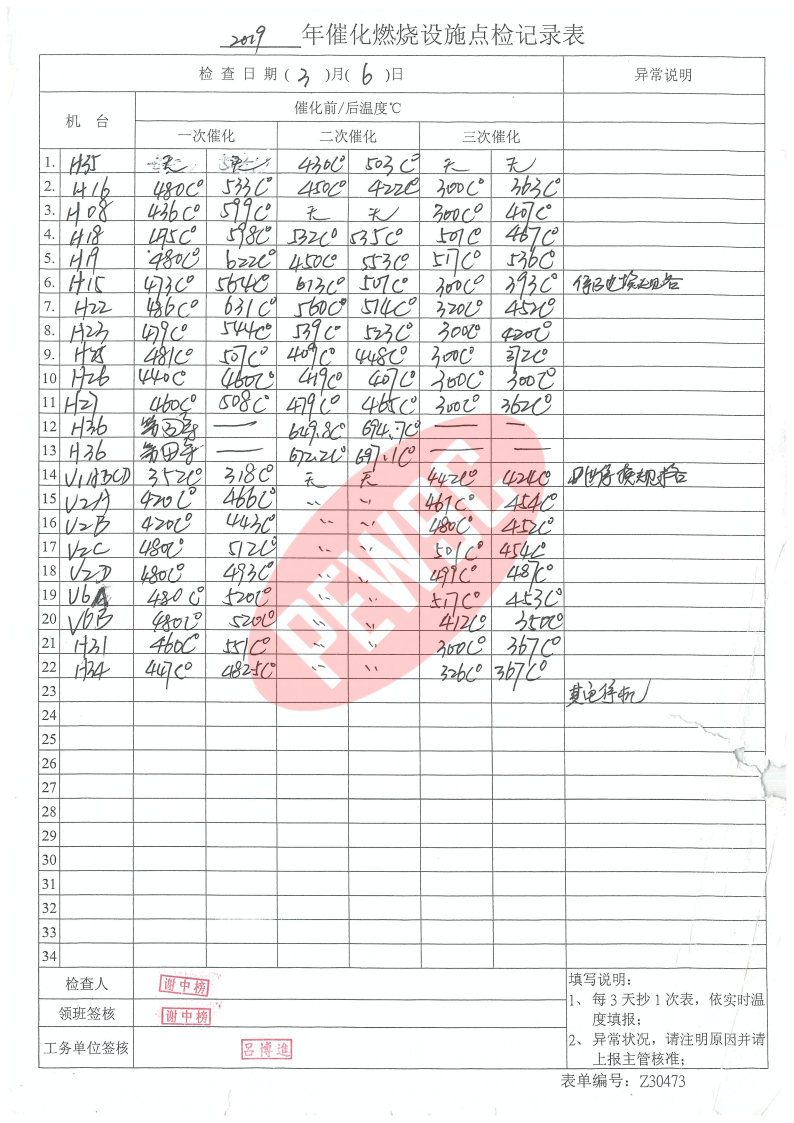 2019 年催化燃烧设施点检记录表
检查日期(3)月(6)日 异常说明
机 台 催化前/后温度℃
一次催化 二次催化 三次催化
1. H35 无 无 430C° 503C° 无 无
2. H16 480C° 533C° 450C° 422C° 300C° 363C°
3. H08 436C° 599C° 无 无 300C° 407C°
4. H18 495C° 598C° 532C° 535C° 501C° 467C°
5. H19 480C° 622C° 450C° 553C° 517C° 536C°
6. H15 473C° 564C° 613C° 507C° 300C° 393C°
7. H22 486C° 631C° 560C° 514C° 320C° 452C°
8. H23 479C° 544C° 539C° 523C° 300C° 420C°
9. H25 481C° 507C° 409C° 448C° 300C° 372C°
10 H26 440C° 460C° 419C° 407C° 300C° 300C°
11 H27 460C° 508C° 479C° 465C° 300C° 362C°
12 H36 — 649.8C° 694.7C° — —
13 H36 — 672.2C° 697.1C° — —
14 V1ABCD 352C° 318C° 无 无 442C° 424C°
15 V2A 420C° 466C° 〃 〃 461C° 454C°
16 V2B 420C° 443C° 〃 〃 480C° 452C°
17 V2C 480C° 512C° 〃 〃 501C° 454C°
18 V2D 480C° 493C° 〃 〃 499C° 487C°
19 V6A 480C° 520C° 〃 〃 517C° 453C°
20 V6B 480C° 520C° 〃 〃 412C° 350C°
21 H31 460C° 551C° 〃 〃 300C° 367C°
22 H34 447C° 482.5C° 〃 〃 326C° 367C°
23 其它停机
24
25
26
27
28
29
30
31
32
33
34
检查人 谢中榜
领班签核 谢中榜
工务单位签核 吕博進
填写说明：
1、每 3 天抄 1 次表，依实时温
度填报；
2、异常状况，请注明原因并请
上报主管核准；
表单编号：Z30473
PEWSC